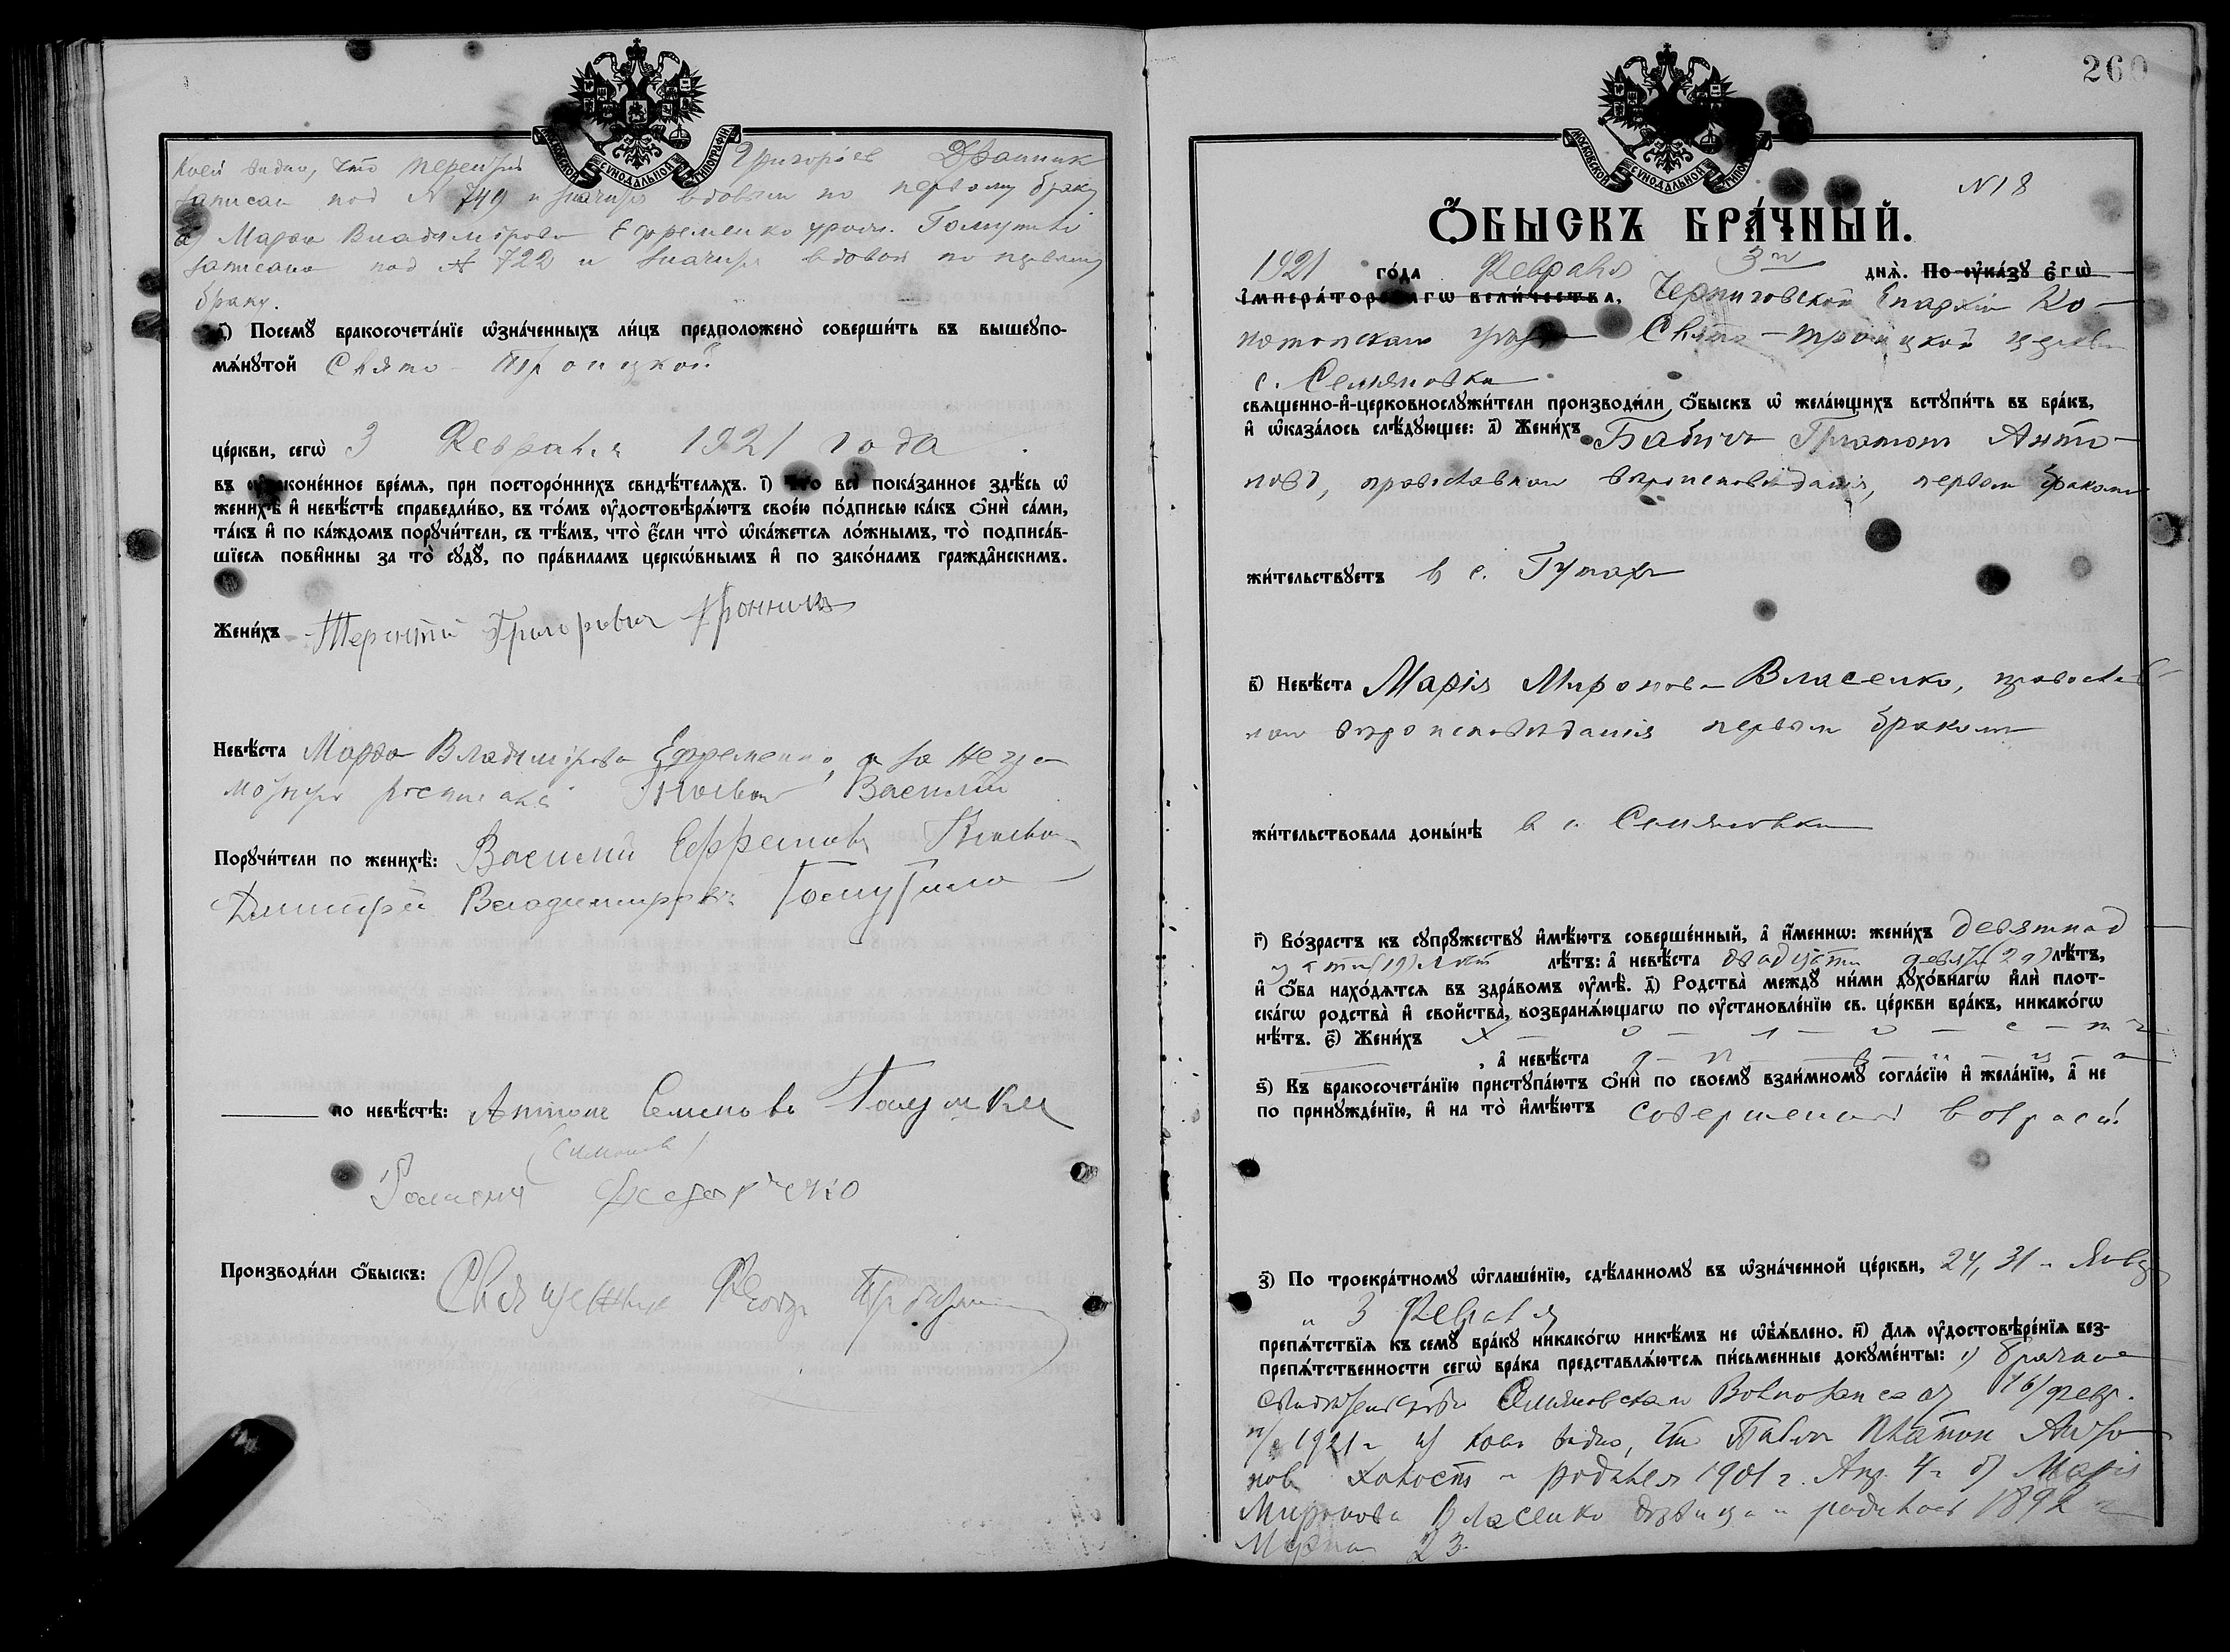 коей видно, что Терентій Григоріев Дронник
записан под N 749 и значится вдовым по первому браку
б) Марфа Владимірова Ефременко урож. Голуткі
записана под N 722 и значится вдовой по первому
браку.
МОСКОВСКОЙ СѴНОДАЛЬНОЙ ТИПОГРАФІИ
Посемꙋ бракосочета́нїе ѡ҆зна́ченныхъ ли́цъ предположено̀ соверши́ть въ вышеꙋпо-
мѧ́нꙋтой Свято - Троицкой
це́ркви, сегѡ̀ 3 Февраля 1921 года
въ ᲂу҆зако́ненное вре́мѧ, при посторо́ннихъ свидѣ́телѧхъ. і҃) Что всѐ пока́занное здѣ́сь ѡ҆
женихѣ̀ и҆ невѣ́стѣ справедли́во, въ то́мъ ᲂу҆достовѣрѧ́ютъ свое́ю по́дписью ка́къ ѻ҆нѝ са́ми,
та́къ и҆ по ка́ждомъ порꙋчи́тели, съ тѣ́мъ, что̀ є҆́сли что̀ ѡ҆ка́жетсѧ ло́жнымъ, то̀ подписа́в-
шїесѧ пови́нны за то̀ сꙋдꙋ̀, по пра́виламъ церко́внымъ и҆ по зако́намъ гражда́нскимъ.
Жени́хъ Терентій Григоровичъ Дронникъ
Невѣ́ста Марфа Владимірова Ефременко, а за не гра
мотную росписался Василій
Порꙋчи́тели по женихѣ̀: Василий Ефремовъ
Дмитрій Владимировъ
по невѣ́стѣ: Антонъ Семеновъ
Романъ Федорченко
Производи́ли ѻ҆́быскъ: Священник Феодор
260
МОСКОВСКОЙ СѴНОДАЛЬНОЙ ТИПОГРАФІИ
N 18
Ѻ҆́БЫСКЪ БРА́ЧНЫЙ.
1921 го́да Февраля 3го днѧ̀. По ᲂу҆ка́зꙋ є҆гѡ̀
і҆мпера́торскагѡ вели́чества, Черниговской Епархіи Ко-
нотопскаго уезда Свято - Троицкой церкви
с. Семяновки
свѧще́нно-и҆-церковнослꙋжи́тели производи́ли ѻ҆́быскъ ѡ҆ жела́ющихъ встꙋпи́ть въ бра́къ,
и҆ ѡ҆каза́лось слѣ́дꙋющее: а҃) Жени́хъ Бабичъ Платонъ Анто-
новъ, православнаго вѣроисповѣданія, первымъ бракомъ
жи́тельствꙋетъ в с. Гутахъ
в҃) Невѣ́ста Марія Миронова Власенко, православ-
наго вѣроисповѣданія первым браком
жи́тельствовала доны́нѣ в с. Семяновки
г҃) Во́зрастъ къ сꙋпрꙋ́жествꙋ и҆мѣ́ютъ соверше́нный, а҆ и҆́меннѡ: жени́хъ девятнад
цати (19) лѣтъ лѣ́тъ: а҆ невѣ́ста двадцати девяти (29) лѣ́тъ,
и҆ ѻ҆́ба нахо́дѧтсѧ въ здра́вомъ ᲂу҆мѣ̀. д҃) Родства̀ междꙋ̀ ни́ми дꙋхо́внагѡ и҆лѝ плот-
ска́гѡ родства̀ и҆ сво́йства̀, возбранѧ́ющагѡ по ᲂу҆становле́нїю св. це́ркви бра́къ, никако́гѡ
нѣ́тъ. є҃) Жени́хъ х - о - л - о - с - т -
, а҆ невѣ́ста д - ѣ - в - и - ц - а
ѕ҃) Къ бракосочета́нїю пристꙋпа́ютъ ѻ҆нѝ по своемꙋ̀ взаи́мномꙋ согла́сїю и҆ жела́нїю, а҆ не
по принꙋжде́нїю, и҆ на то̀ и҆мѣ́ютъ совершенный возраст
з҃) По троекра́тномꙋ ѡ҆глаше́нїю, сдѣ́ланномꙋ въ ѡ҆зна́ченной це́ркви, 24, 31 - Янв.
и 3 Февраля
препѧ́тствїѧ къ семꙋ̀ бра́кꙋ никако́гѡ никѣ́мъ не ѡ҆б̾ѧ́влено. и҃) Длѧ ᲂу҆достовѣре́нїѧ без-
препѧ́тственности сегѡ̀ бра́ка представлѧ́ютсѧ пи́сьменные докꙋме́нты: 1) брачное
свидѣтельство Семяновскаго Волисполкома от 16/февр.
1921 г из коего видно, что Бабич Платон Анто
нов холост и родился 1901 г. Апр. 4 - б) Марія
Миронова Власенко дѣвица и родилась 1892 г
Марта 23.